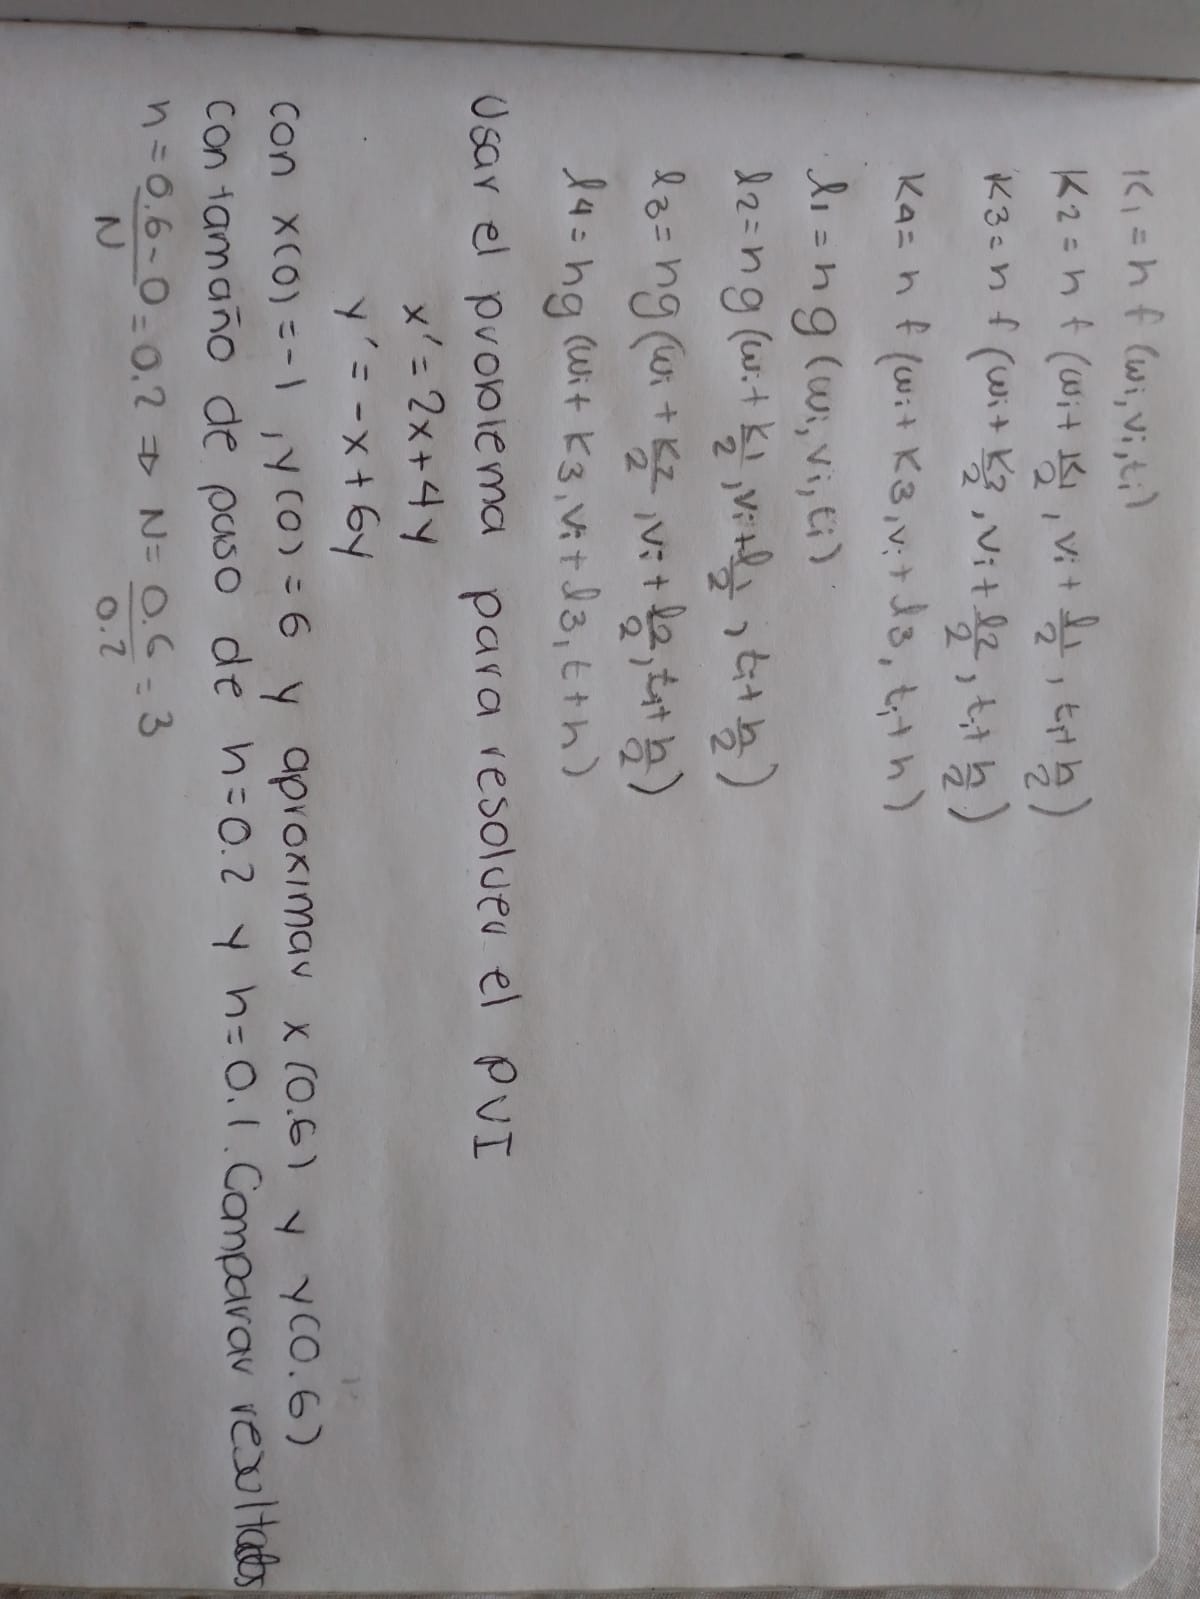 K1 = h f (wi, vi, ti)
K2 = h f (wi + K1/2, vi + l1/2, ti + h/2)
K3 = h f (wi + K2/2, vi + l2/2, ti + h/2)
K4 = h f (wi + K3, vi + l3, ti + h)
l1 = h g (wi, vi, ti)
l2 = h g (wi + K1/2, vi + l1/2, ti + h/2)
l3 = h g (wi + K2/2, vi + l2/2, ti + h/2)
l4 = h g (wi + K3, vi + l3, t + h)
Usar el problema para resolver el PVI
x' = 2x + 4y
y' = -x + 6y
con x(0) = -1, y(0) = 6 y aproximar x(0.6) y y(0.6)
con tamaño de paso de h = 0.2 y h = 0.1. Comparar resultados
h = 0.6 - 0/N = 0.2 ⇒ N = 0.6/0.2 = 3